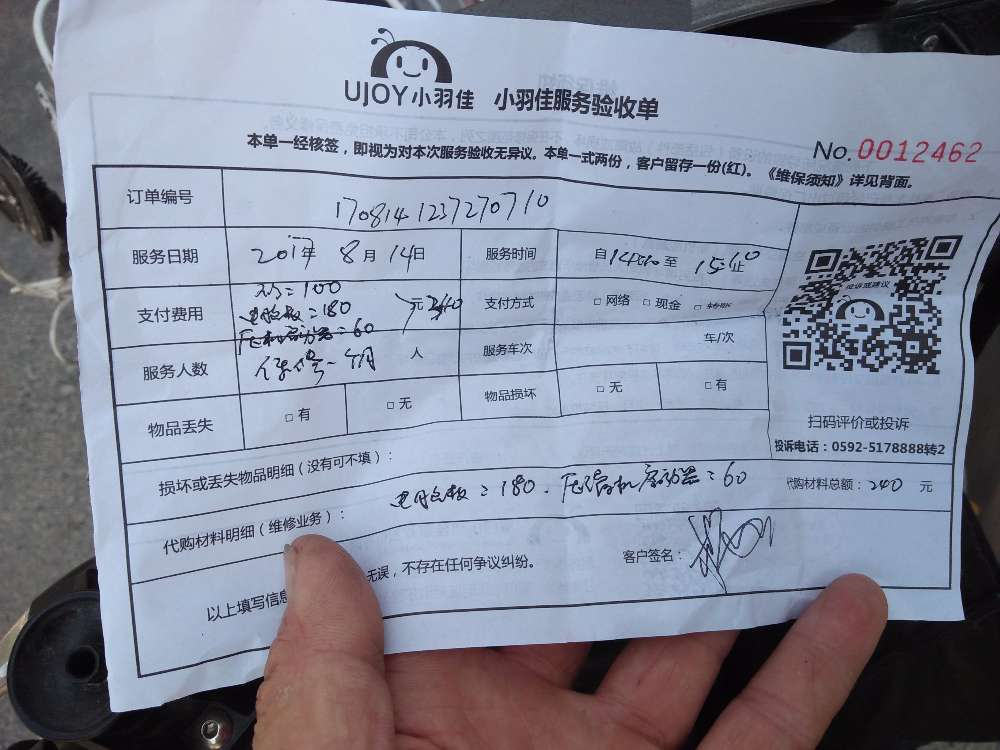 UJOY小羽佳 小羽佳服务验收单
本单一经核签，即视为对本次服务验收无异议。本单一式两份，客户留存一份(红)。《维保须知》详见背面。
No.0012462
订单编号 1708141237270710
服务日期 2017年 8月 14日 服务时间 自 至
支付费用 =100
电脑板=180
压机启动器=60
元 支付方式 □网络 □现金 □
服务人数 一个月 人 服务车次 车/次
物品丢失 □有 □无 物品损坏 □无 □有
投诉或建议
扫码评价或投诉
投诉电话：0592-5178888转2
损坏或丢失物品明细（没有可不填）：
代购材料明细（维修业务）： 电脑板=180、压缩机启动器=60 代购材料总额：240 元
以上填写信息 无误，不存在任何争议纠纷。 客户签名：